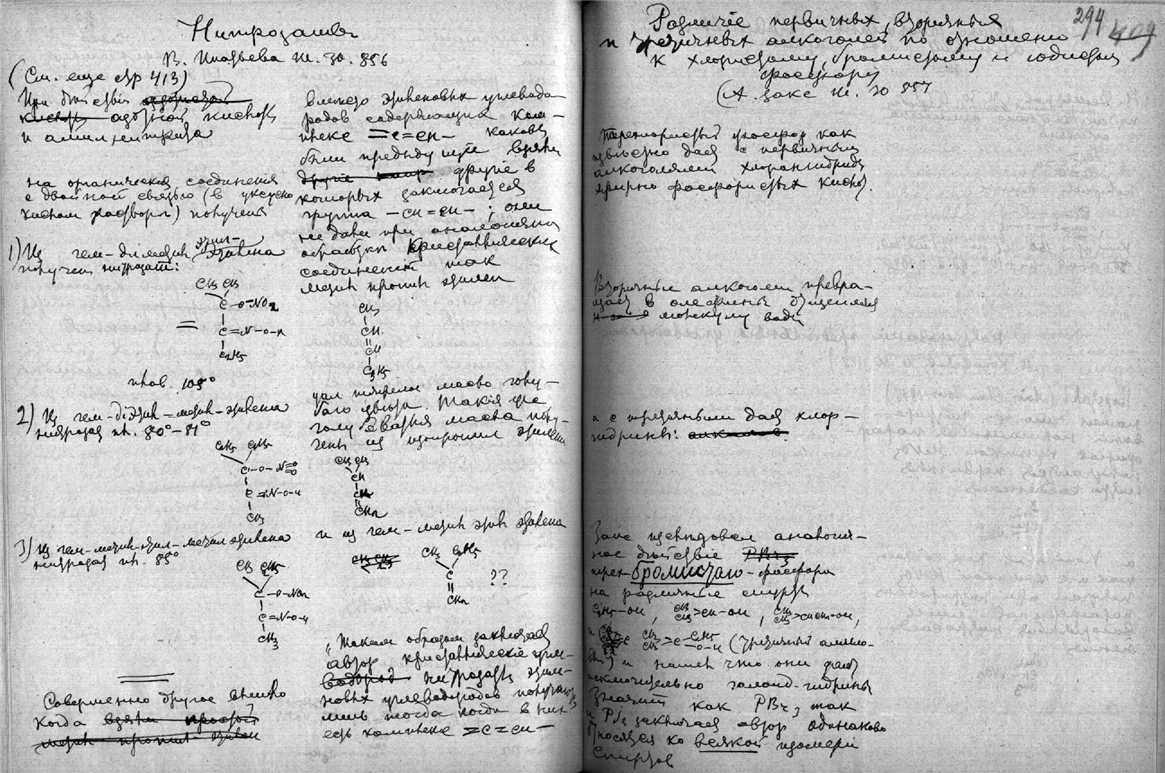 Нитрозаты
В. Ж. 30. 886
(См. еще стр 413)
При действии азотной кислоты
и амилнитрита
на органические соединения
с двойной связью (в уксусно
кислом растворе) получены
1) Из гем-диметил этил-этилена
получен нитрозат:
CH3 CH3
C-O-NO2
C=N-O-H
C2H5
плав. 105°
2) Из гем-диэтил-метил-этилена
нитрозат пл. 80°-81°
C2H5 C2H5
C-O-N=O
C=N-O-H
CH3
3) Из гем-метил-этил-метил этилена
нитрозат пл. 85°
CH3 C2H5
C-O-NO2
C=N-O-H
CH3
Совершенно другое
когда
вместо этиленовых углеводо
родов содержащих ком-
плекс =C=CH- каковы
были предыдущие взяты
другие в
которых заключается
группа -CH=CH-; они
не дали при аналогичных
кристаллических
соединений так
метил пропил этилен
CH3
CH
CH
C3H7
дал тяжелое масло голу-
бого цвета. Такие же
голубые масла полу-
чены из изопропил этилена
CH3 CH3
CH
CH
CH2
и из гем-метил этил этилена
CH3 C2H5
C
CH2
??
"Таким образом заключает
автор, кристаллические
нитрозаты этиле-
новых углеводородов получаются
лишь тогда когда в них
есть комплекс =C=CH-
294
409
Различие первичных, вторичных
и третичных алкоголей по отношению
к хлористому, бромистому и иодистому
фосфору
(А. Заке Ж. 30 857
Треххлористый фосфор как
известно дает с первичными
алкоголями хлорангидриды
эфирно фосфористых кислот.
Вторичные алкоголи превра-
щает в олефины отщепляя
молекулу воды
а с третичными дает хлор-
гидрины:
Заке исследовал аналогич-
ное действие
трех-бромистого-фосфора
на различные спирты
C2H5-OH, CH3 CH3>CH-OH, CH3 CH3>CHCH2-OH,
CH3 CH3>C-C2H5 O-H (третичный амило-
вый) и нашел что они дают
исключительно галоид-гидрины
Значит как PBr3 так
и PJ3 заключает автор одинаково
относятся ко всякой изомерии
спиртов